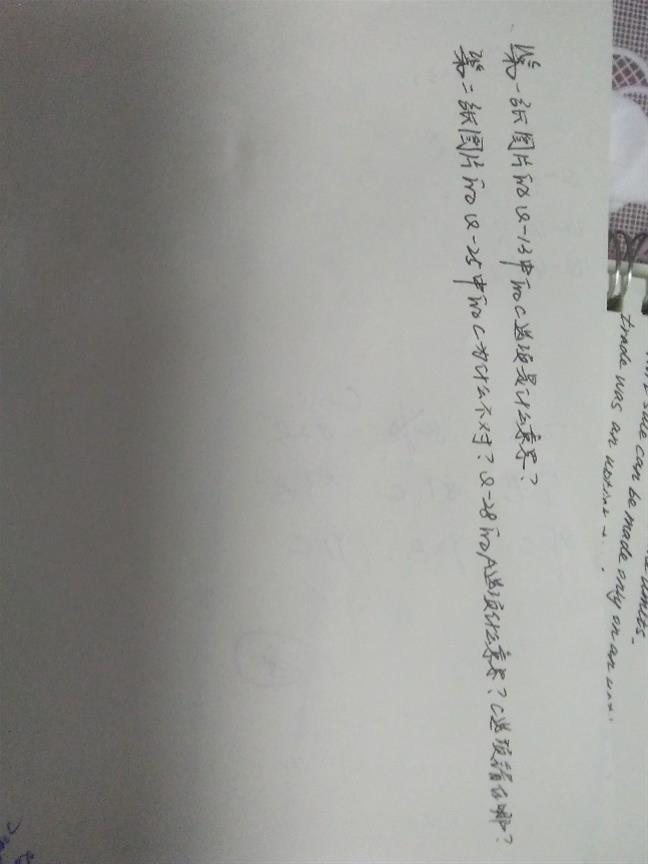 第一张图片和Q-13中和C选项是什么意思?
第二张图片和Q-25中和C为什么不对?Q-28和A选项什么意思?C选项错在哪?
sale can be made only on an
trade was an
limits.